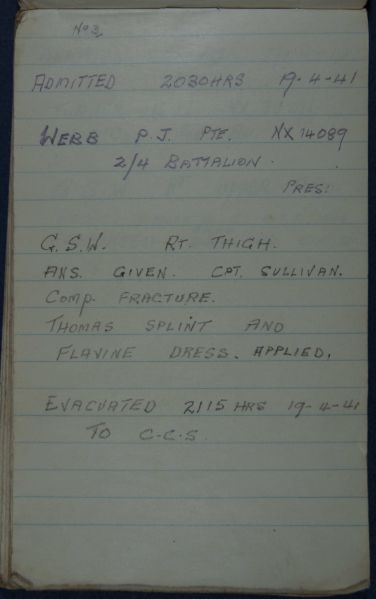 No 3.
ADMITTED 2030HRS 19-4-41
WEBB P.J. PTE. NX14089
2/4 BATTALION.
PRES:
G.S.W. RT. THIGH.
ANS. GIVEN. CPT. SULLIVAN.
COMP. FRACTURE.
THOMAS SPLINT AND
FLAVINE DRESS. APPLIED.
EVACUATED 2115 HRS 19-4-41
TO C-C-S.